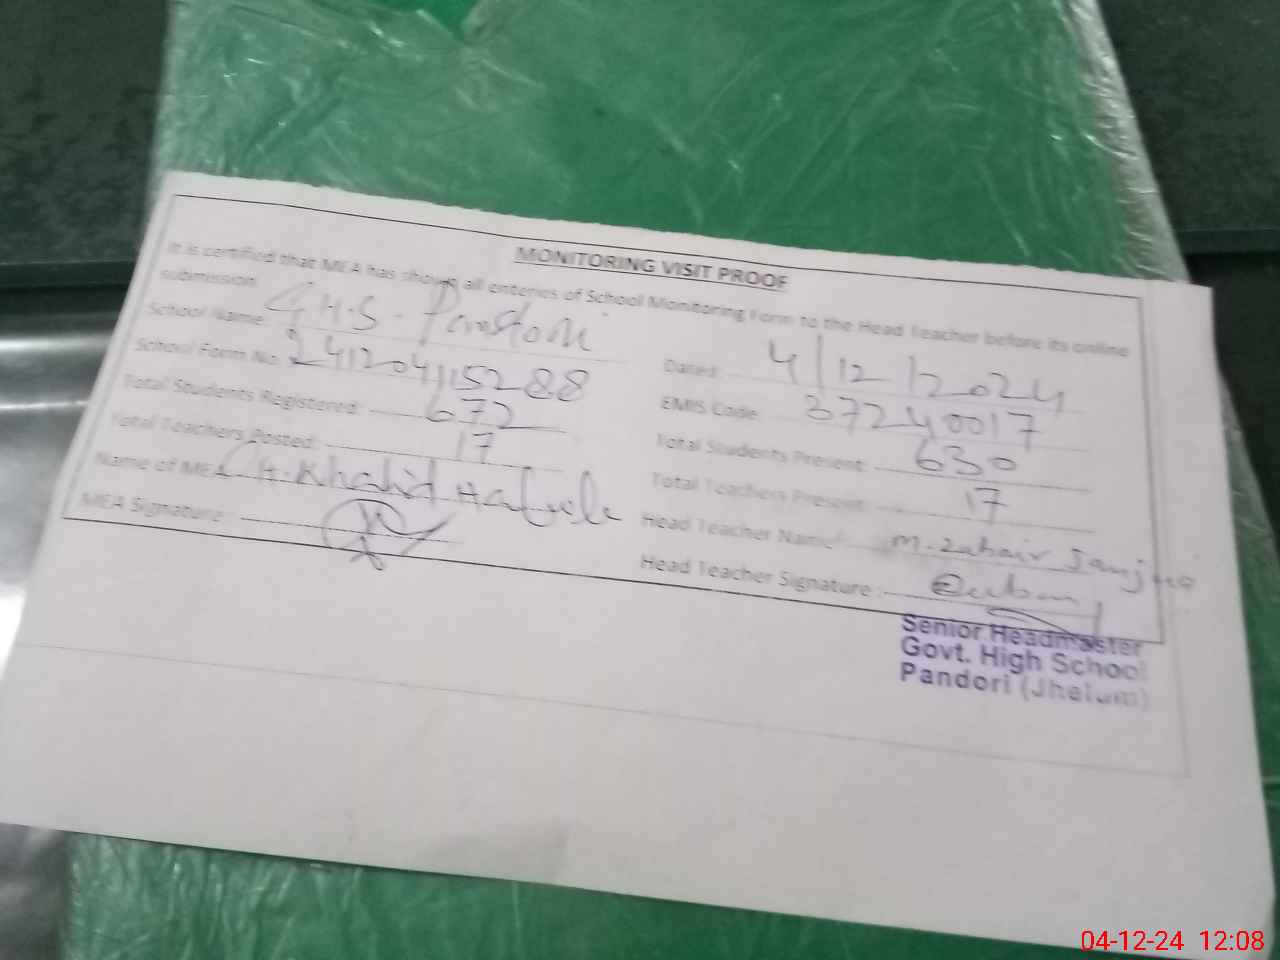 MONITORING VISIT PROOF
It is certified that MEA has shown all enteries of School Monitoring Form to the Head Teacher before its online
submission
School Name: G.H.S. Pandori
Dated: 4/12/2024
School Form No: 241204115288
EMIS Code: 37240017
Total Students Registered: 672
Total Students Present: 630
Total Teachers Posted: 17
Total Teachers Present: 17
Name of MEA: CH. Khalid
Head Teacher Name: M. Zahair Janjua
MEA Signature:
Head Teacher Signature:
Senior Headmaster
Govt. High School
Pandori (Jhelum)
04-12-24 12:08